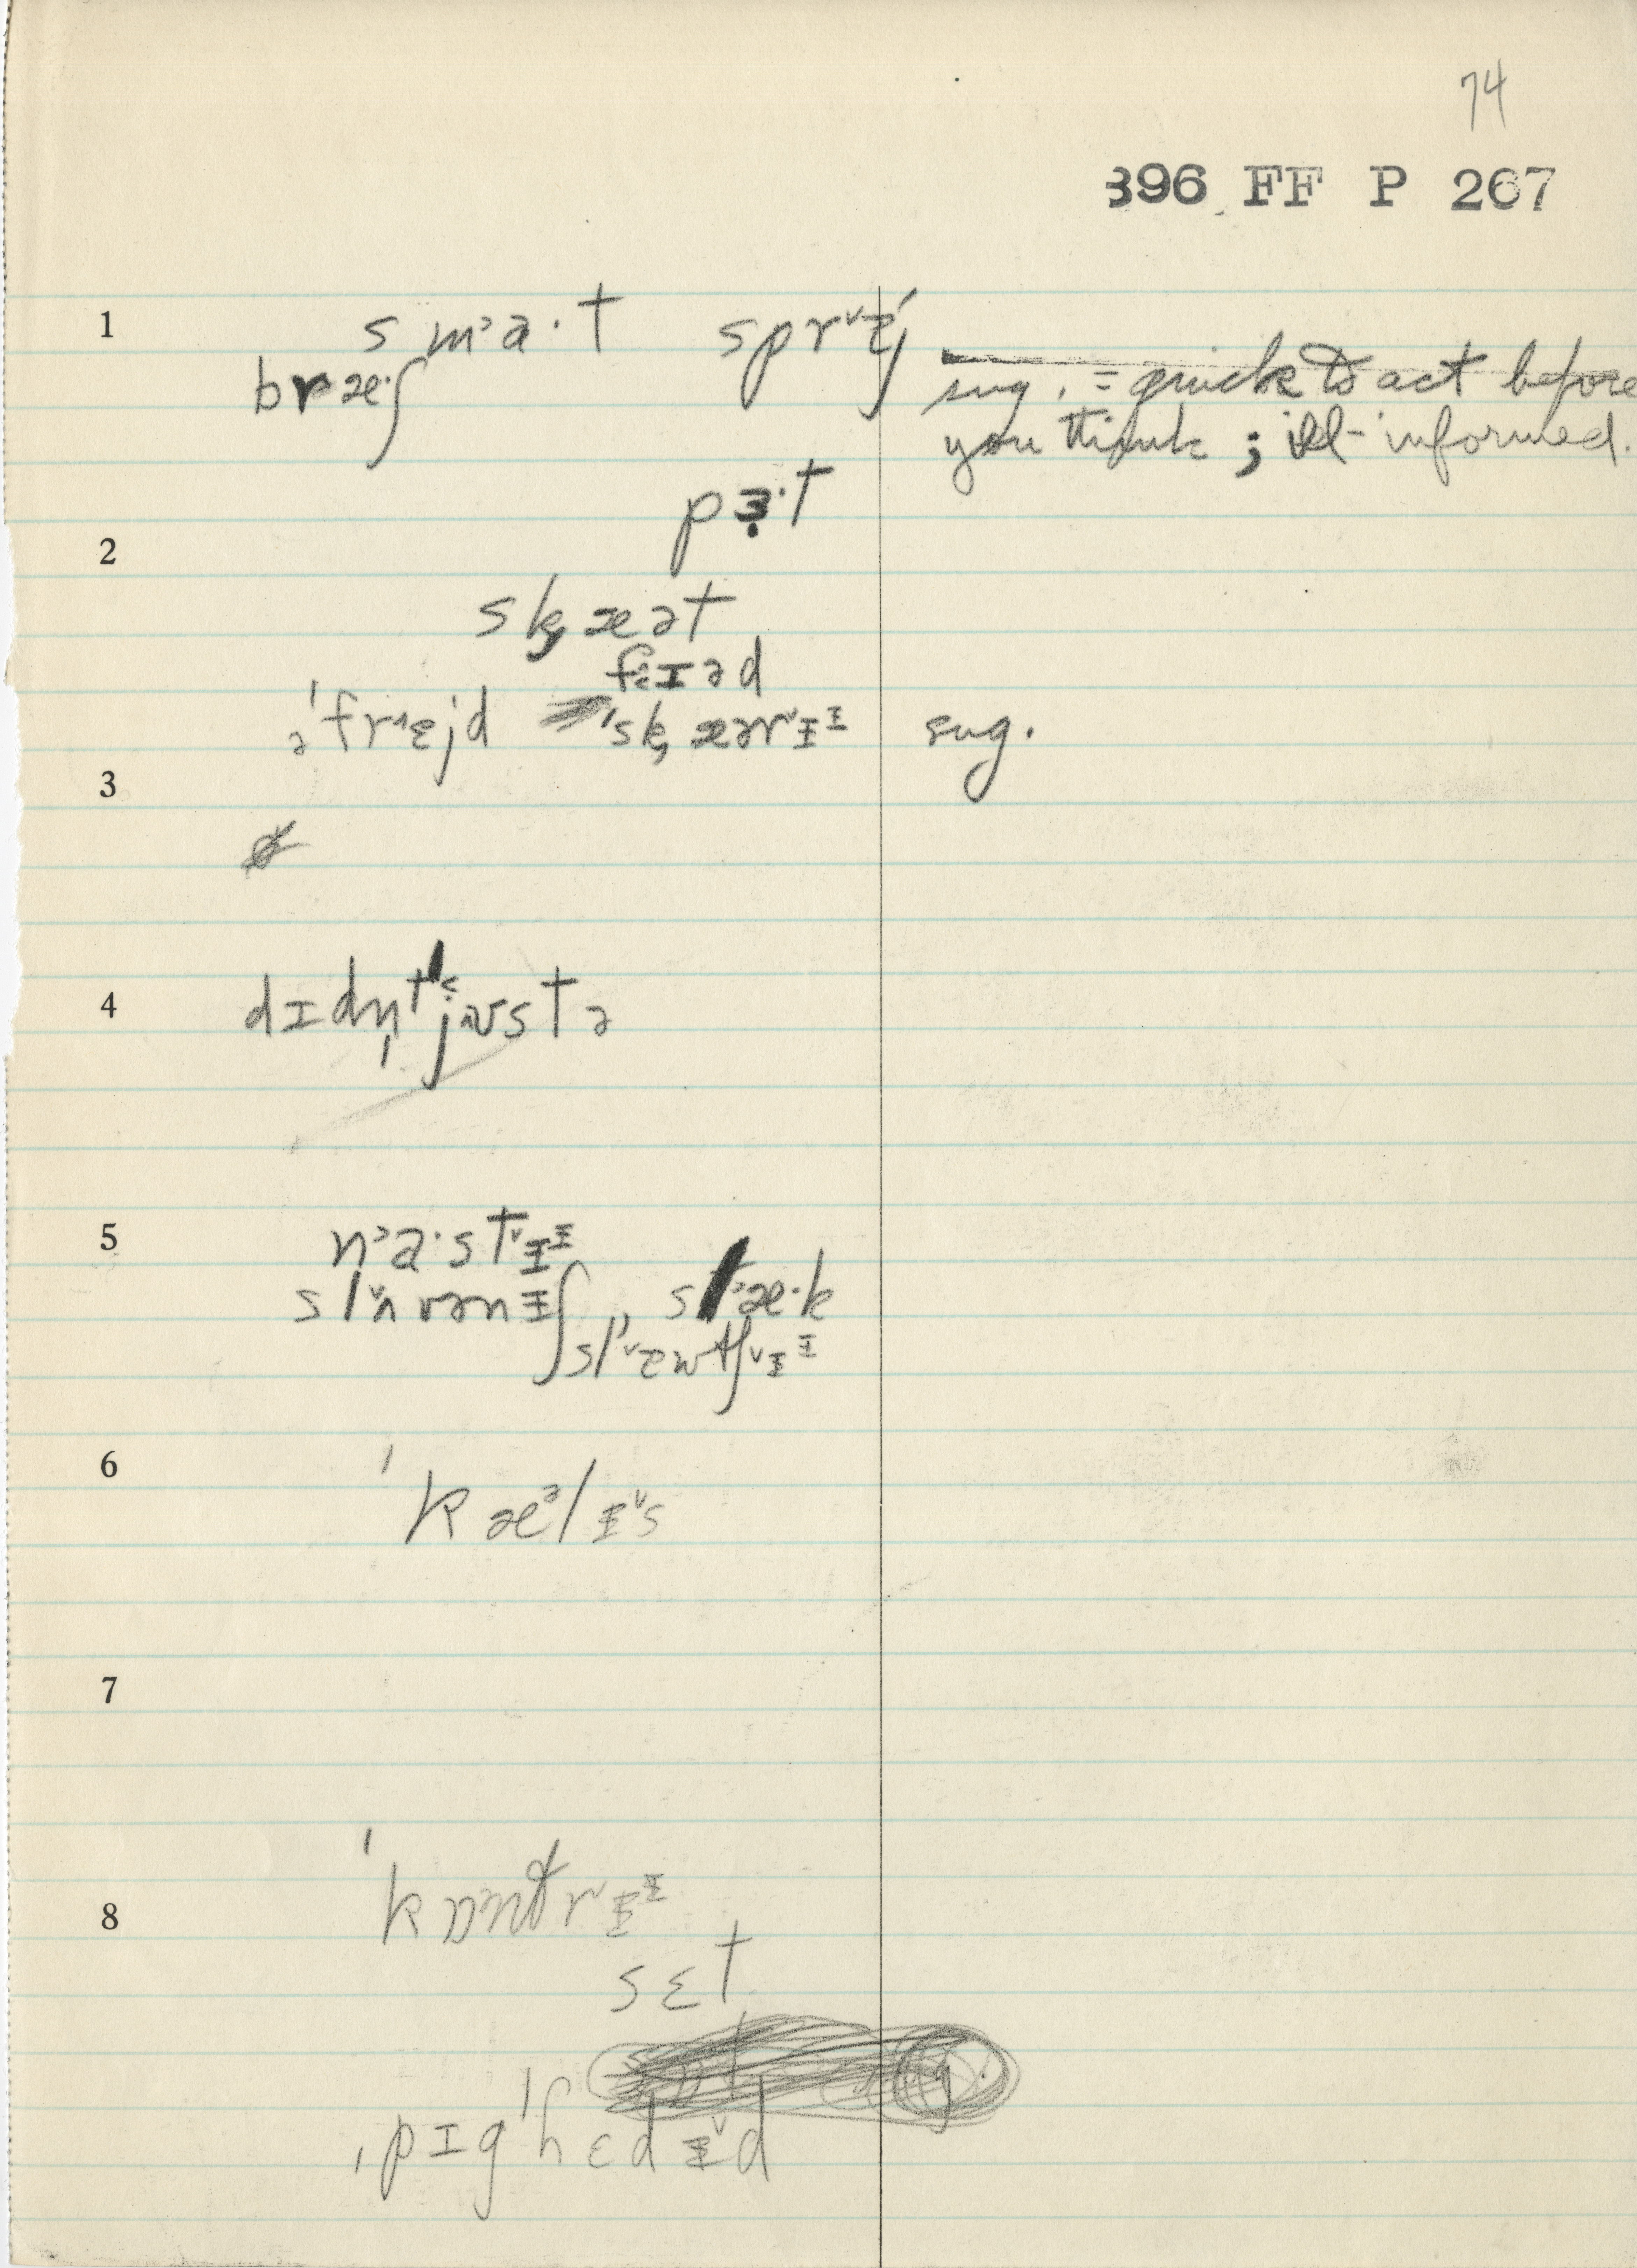 74
396 FF P 267
1 s m˃a·t sprᵛɛj
bræ·ʃ sug. = quick to act before
you think ; ill-informed.
pɜ·t
2
sk̟æət
fɛɪəd
ə'frᶺɛjd 'sk̟æərᵛɪᶦ sug.
3
4 dɪdn̩t˂jʊstə
5 n˃a·stᵛɪᶦ
slᵛʌvənɪʃ, sl˃æ·k
slᵛɛwtʃᵛɪᶦ
6 'kæᵊlɪᵛs
7
'kɒntrᵛɪᶦ
8
sɛt
ˌpɪg'hɛdɪᵛd